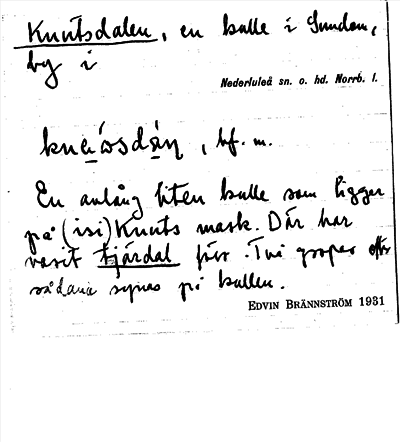 Knutsdalen, en kulle i Sundom,
by i
Nederluleå sn. o. hd. Norrb. l.
bf. m.
En avlång liten kulle som ligger
på (isi) Knuts mark. Där har
varit tjärdal förr. Två gropar efter
sådana synes på kullen.
EDVIN BRÄNNSTRÖM 1931